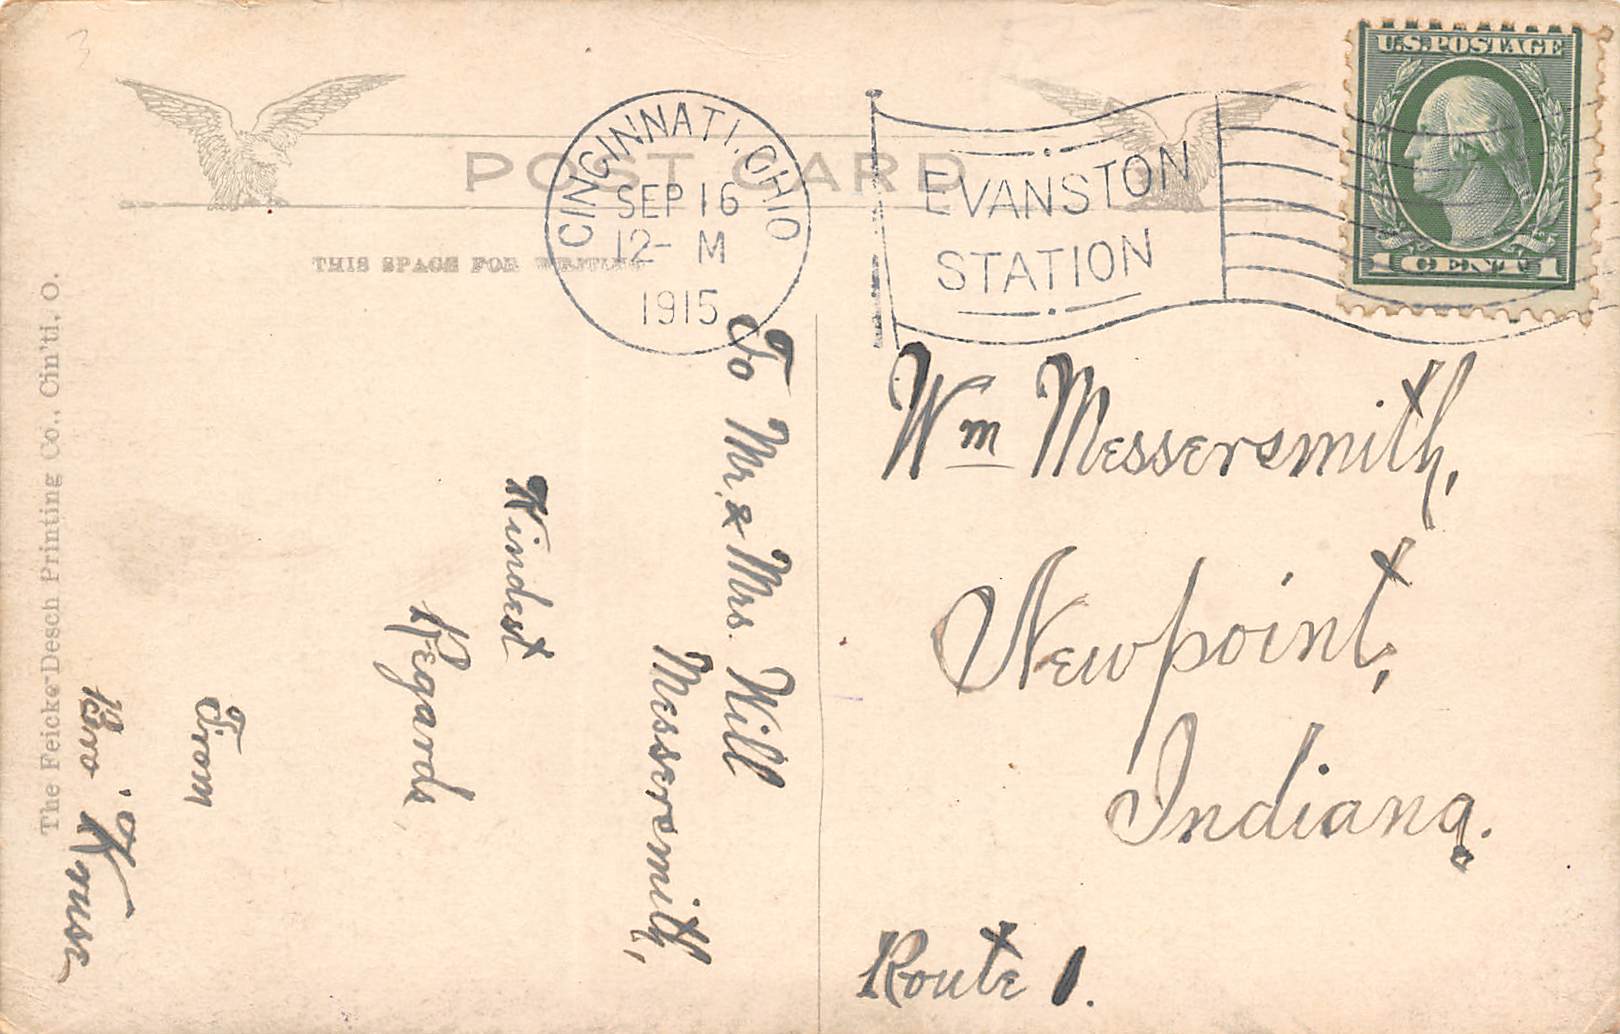 U.S. POSTAGE
1 CENT 1
CINCINNATI, OHIO
SEP 16
12 - M
1915
EVANSTON
STATION
POST CARD
THIS SPACE FOR WRITING
The Feicke-Desch Printing Co., Cin'ti, O.
To Mr. & Mrs. Will
Messersmith,
Kindest
Regards
From
Kruse
Wm Messersmith,
Newpoint,
Indiana.
Route 1.
3